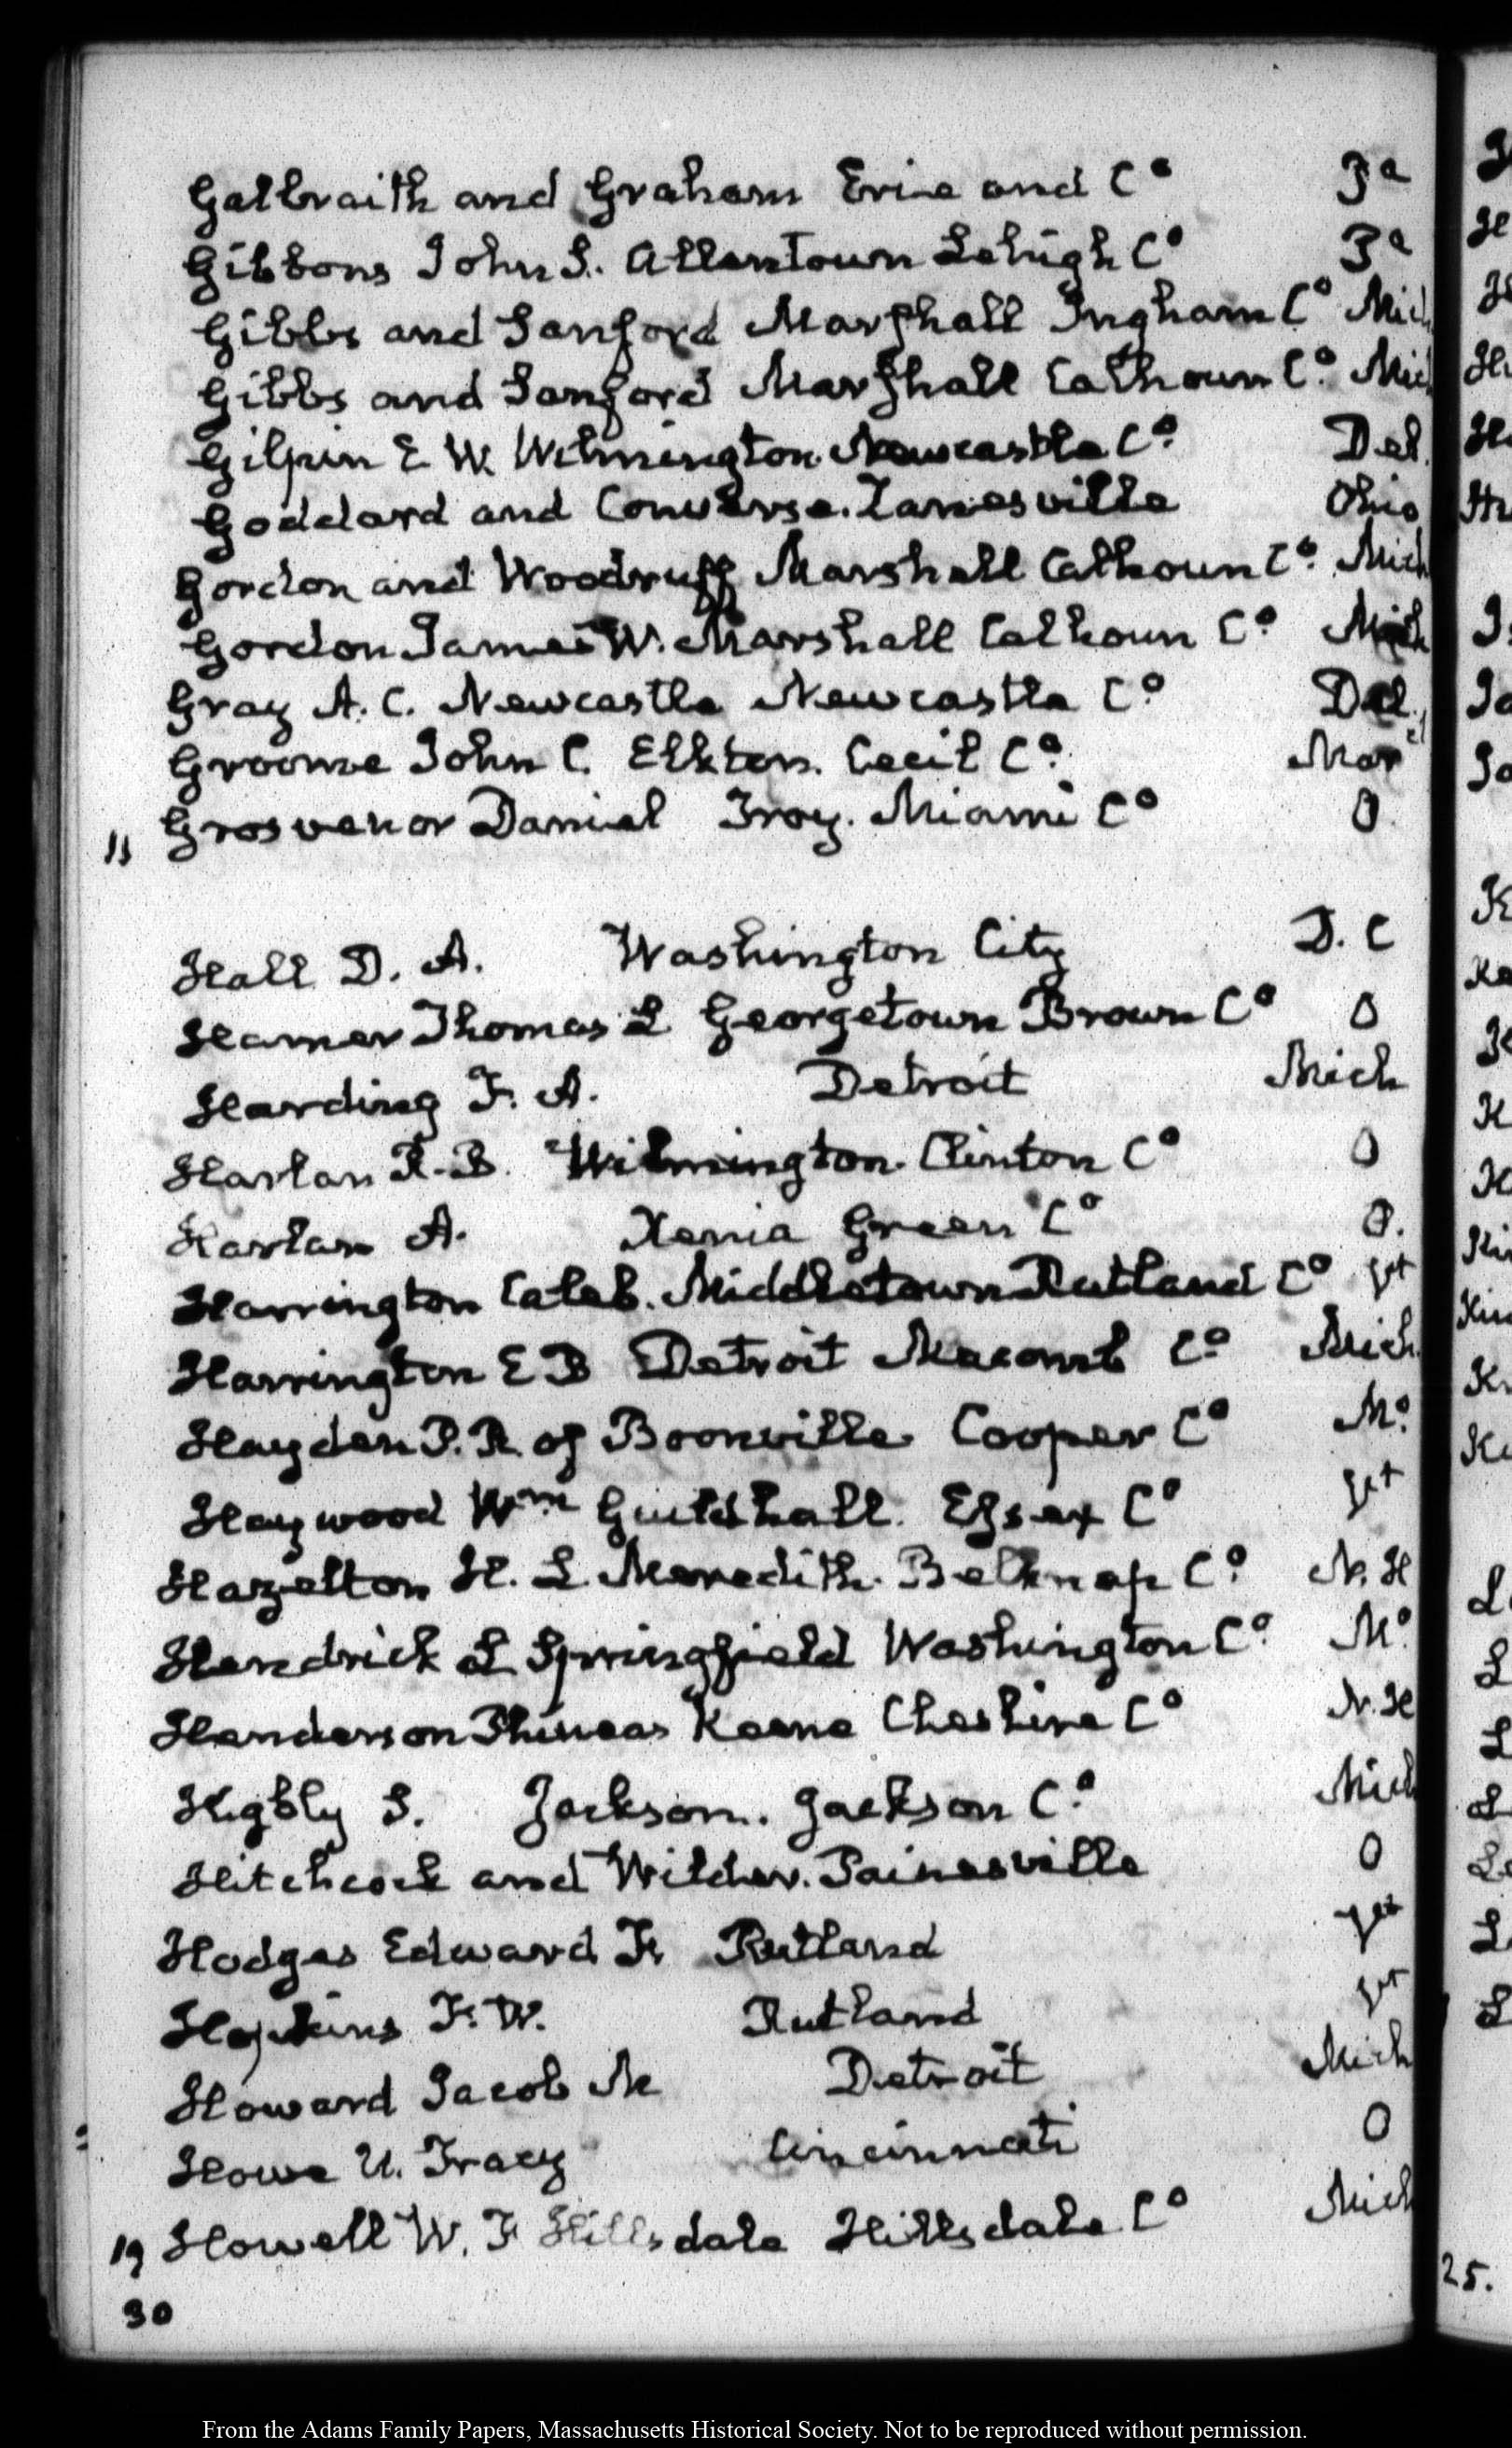 Galbraith and Graham Erie and Cº Pª
Gibbons John S. Allentown Lehigh Cº Pª
Gibbs and Sanford Marshall Ingham Cº Mich
Gibbs and Sanford Marshall Calhoun Cº Mich
Gilpin E W. Wilmington Newcastle Cº Del.
Goddard and Converse. Zanesville Ohio
Gordon and Woodruff Marshall Calhoun Cº Mich
Gordon James W. Marshall Calhoun Cº Mich
Gray A. C. Newcastle Newcastle Cº Del.
Groome John C. Elkton. Cecil Cº Mar
11 Grosvenor Daniel Troy. Miami Cº O.
Hall D. A. Washington City D. C
Hamer Thomas L Georgetown Brown Cº O
Harding F. A. Detroit Mich
Harlan R. B. Wilmington. Clinton Cº O
Harlan A. Xenia Green Cº O.
Harrington Caleb. Middletown Rutland Cº Vt
Harrington E B Detroit Macomb Cº Mich.
Hayden P. R. of Boonville Cooper Cº Mº
Haywood Wm Guildhall. Essex Cº Vt
Hazelton H. L. Meredith. Belknap Cº N. H
Hendrick L Springfield Washington Cº Mº
Henderson Phineas Keene Cheshire Cº N. H
Higbly S. Jackson. Jackson Cº Mich
Hitchcock and Wilder. Painesville O
Hodges Edward F. Rutland Vt
Hopkins F. W. Rutland Vt
Howard Jacob M Detroit Mich
Howe U. Tracy Cincinnati O
19 Howell W. F Hillsdale Hillsdale Cº Mich
30
25.
From the Adams Family Papers, Massachusetts Historical Society. Not to be reproduced without permission.